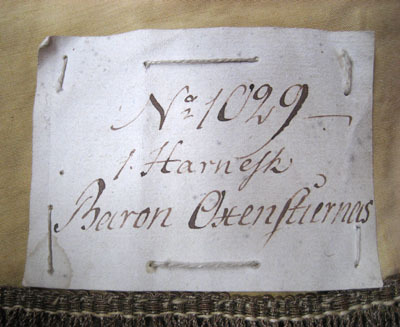 No 1029 —
1. Harnesk
Baron Oxenstiernas